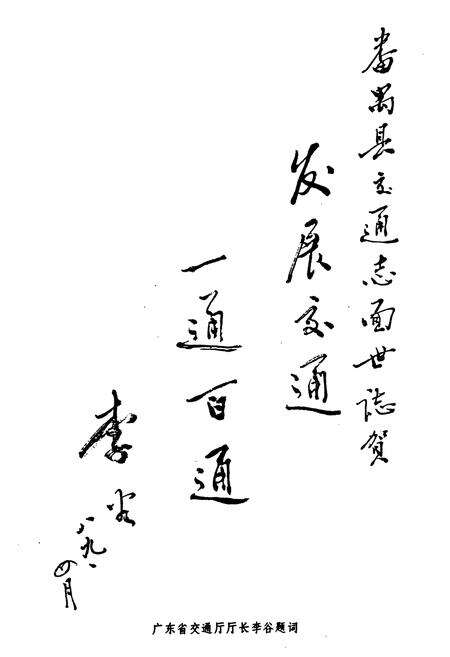 番禺县交通志面世志贺
发展交通
一通百通
李谷
八九、四月
广东省交通厅厅长李谷题词